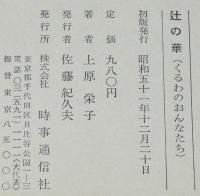 辻の華（くるわのおんなたち）
初版発行　昭和五十一年十二月二十日
定価　九八〇円
著者　上原栄子
発行者　佐藤紀久夫
発行所　株式会社　時事通信社
東京都千代田区日比谷公園一—三
電話〇三（五九一）一一一一（大代表）
振替東京八五〇〇〇